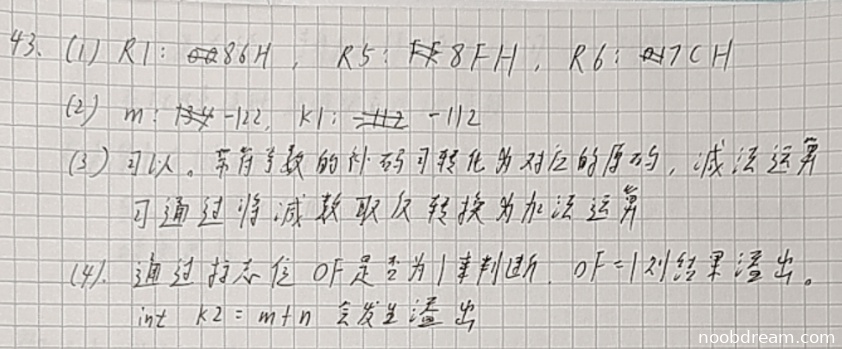 43. (1) R1: 86H, R5: 8FH, R6: 7CH
(2) m: -122, k1: -112
(3) 可以。带符号数的补码可转化为对应的原码，减法运算
可通过将减数取反转换为加法运算
(4). 通过标志位 OF是否为1来判断. OF=1则结果溢出。
int k2 = m+n 会发生溢出
noobdream.com